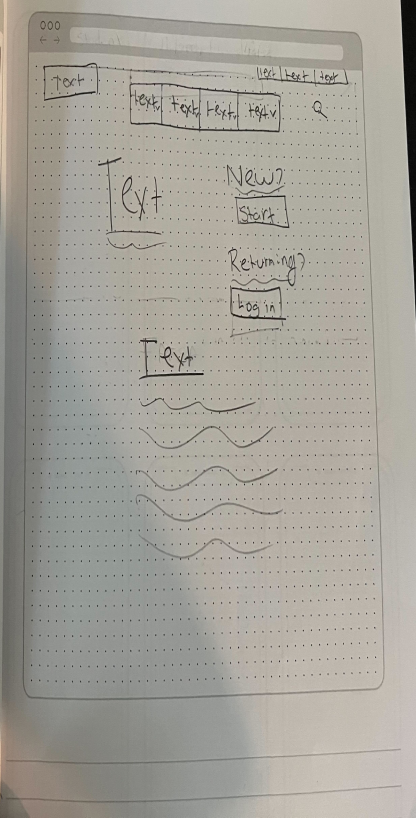 text text text
Text
text text text text
Text
New?
Start
Returning?
Log in
Text